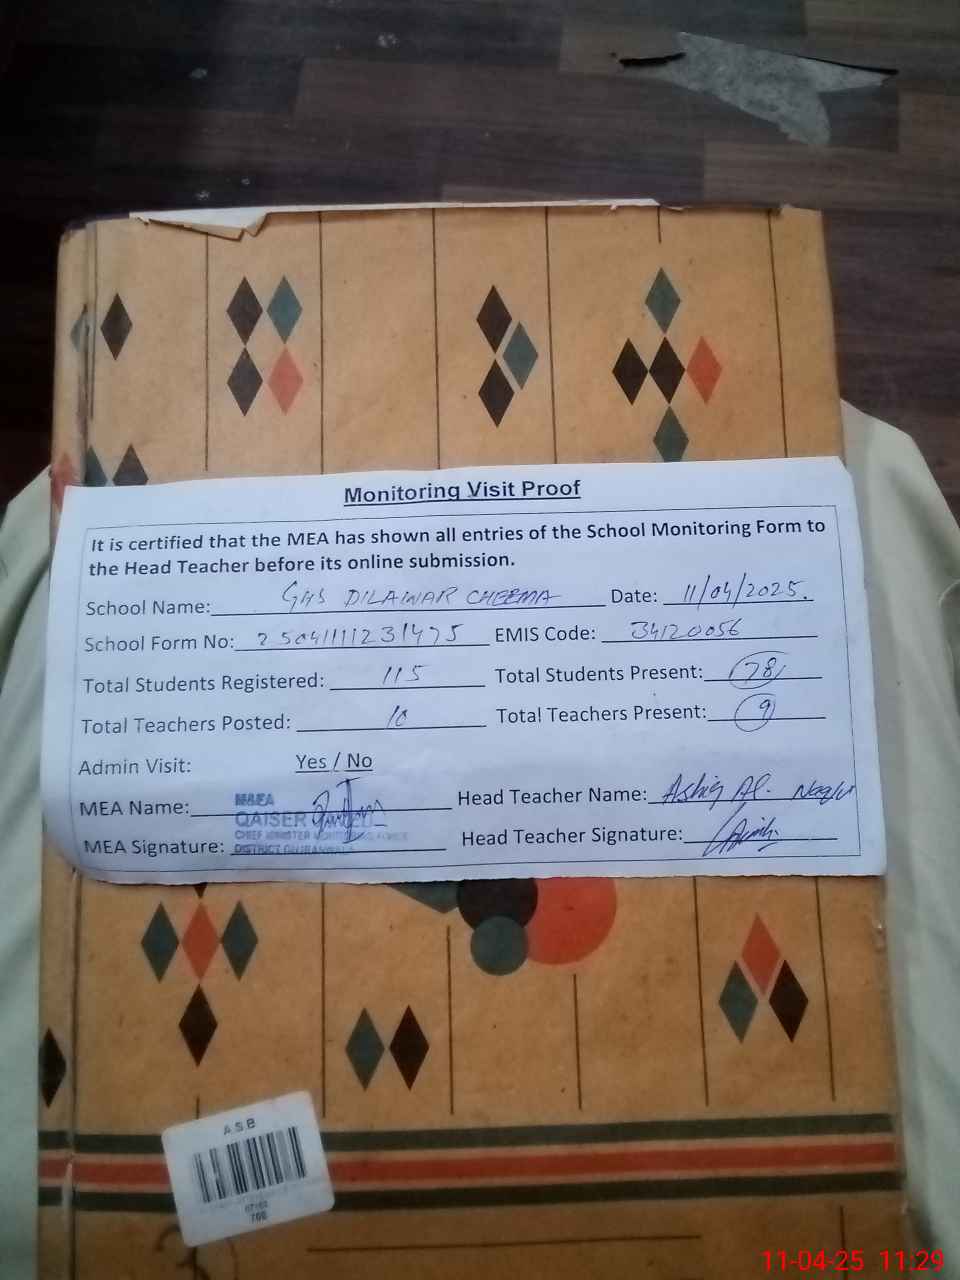 Monitoring Visit Proof
It is certified that the MEA has shown all entries of the School Monitoring Form to
the Head Teacher before its online submission.
School Name: GHS DILAWAR CHEEMA Date: 11/04/2025.
School Form No: 25041111231475 EMIS Code: 34120056
Total Students Registered: 115 Total Students Present: 78
Total Teachers Posted: 10 Total Teachers Present: 9
Admin Visit: Yes / No
MEA Name: Head Teacher Name: Ashiq
M&EA
QAISER
CHIEF MINISTER MONITORING FORCE
MEA Signature: Head Teacher Signature:
DISTRICT GUJRANWALA
A.S.B
700
11-04-25 11:29